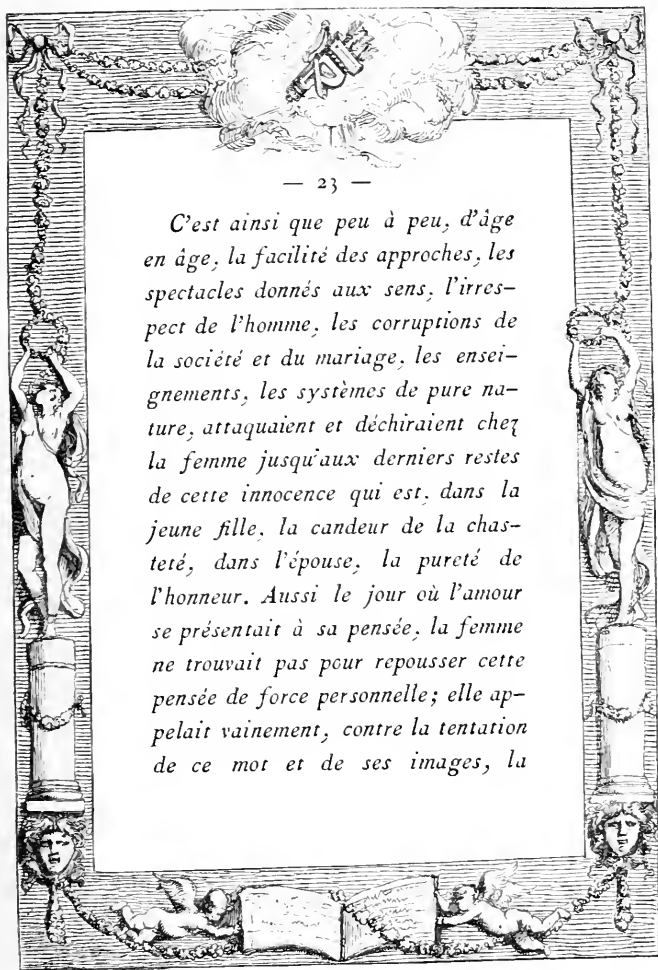 — 23 —
C'est ainsi que peu à peu, d'âge
en âge, la facilité des approches, les
spectacles donnés aux sens, l'irres-
pect de l'homme, les corruptions de
la société et du mariage, les ensei-
gnements, les systèmes de pure na-
ture, attaquaient et déchiraient chez
la femme jusqu'aux derniers restes
de cette innocence qui est, dans la
jeune fille, la candeur de la chas-
teté, dans l'épouse, la pureté de
l'honneur. Aussi le jour où l'amour
se présentait à sa pensée, la femme
ne trouvait pas pour repousser cette
pensée de force personnelle; elle ap-
pelait vainement, contre la tentation
de ce mot et de ses images, la